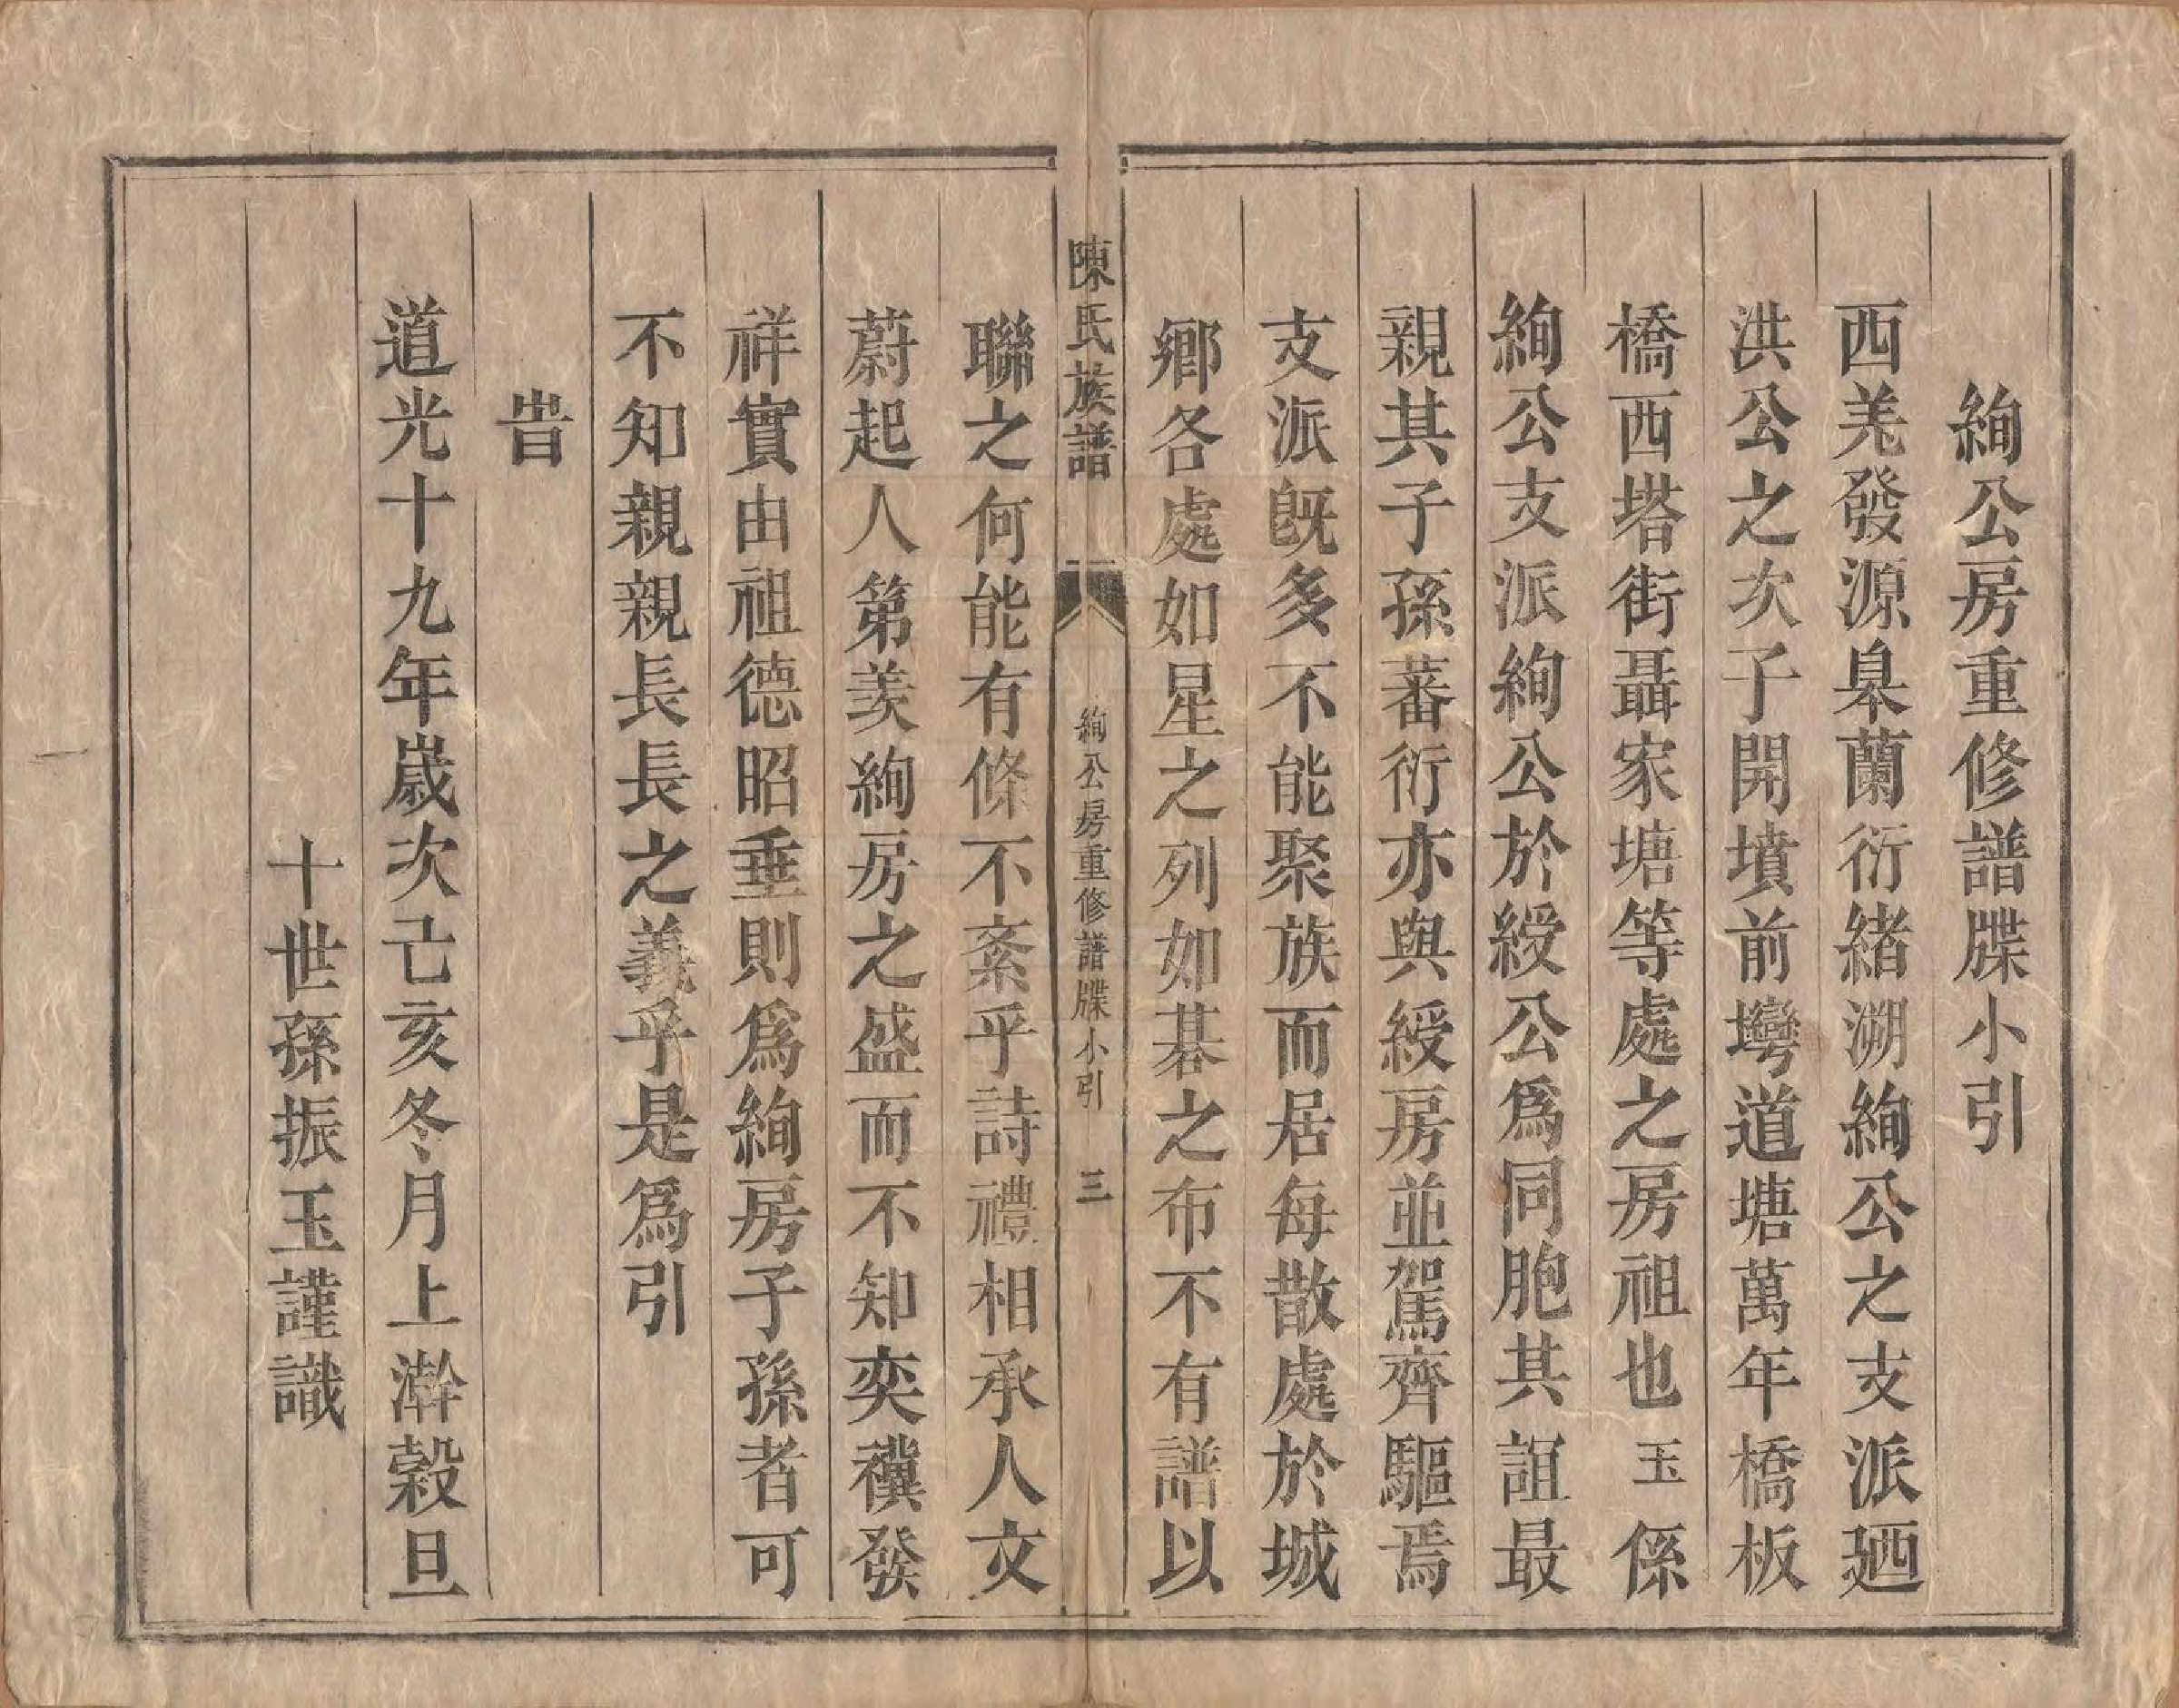 絢公房重修譜牒小引
西羌發源臯蘭衍緒溯絢公之支派廼
洪公之次子開墳前塆道塘萬年橋板
橋西塔街聶家塘等處之房祖也玉係
絢公支派絢公於綬公爲同胞其誼最
親其子孫蕃衍亦與綬房並駕齊驅焉
支派旣多不能聚族而居每散處於城
鄉各處如星之列如碁之布不有譜以
陳氏族譜
絢公房重修譜牒小引
三
聯之何能有條不紊乎詩禮相承人文
蔚起人第羡絢房之盛而不知奕禩發
祥實由祖德昭垂則爲絢房子孫者可
不知親親長長之義乎是爲引
旹
道光十九年歲次己亥冬月上澣穀旦
十世孫振玉謹識